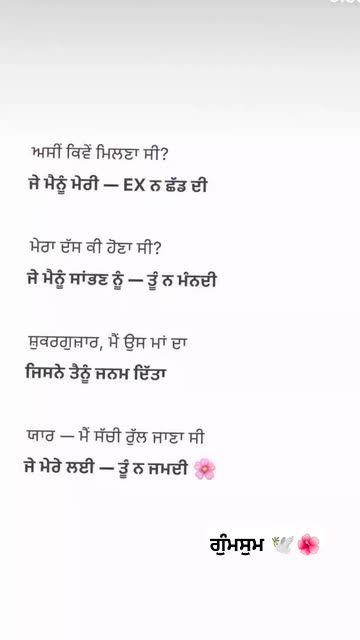 ਅਸੀਂ ਕਿਵੇਂ ਮਿਲਣਾ ਸੀ?
ਜੇ ਮੈਨੂੰ ਮੇਰੀ — EX ਨ ਛੱਡ ਦੀ
ਮੇਰਾ ਦੱਸ ਕੀ ਹੋਣਾ ਸੀ?
ਜੇ ਮੈਨੂੰ ਸਾਂਭਣ ਨੂੰ — ਤੂੰ ਨ ਮੰਨਦੀ
ਸ਼ੁਕਰਗੁਜ਼ਾਰ, ਮੈਂ ਉਸ ਮਾਂ ਦਾ
ਜਿਸਨੇ ਤੈਨੂੰ ਜਨਮ ਦਿੱਤਾ
ਯਾਰ — ਮੈਂ ਸੱਚੀ ਰੁੱਲ ਜਾਣਾ ਸੀ
ਜੇ ਮੇਰੇ ਲਈ — ਤੂੰ ਨ ਜਮਦੀ 🌸
ਗੁੰਮਸੁਮ 🕊️🌺